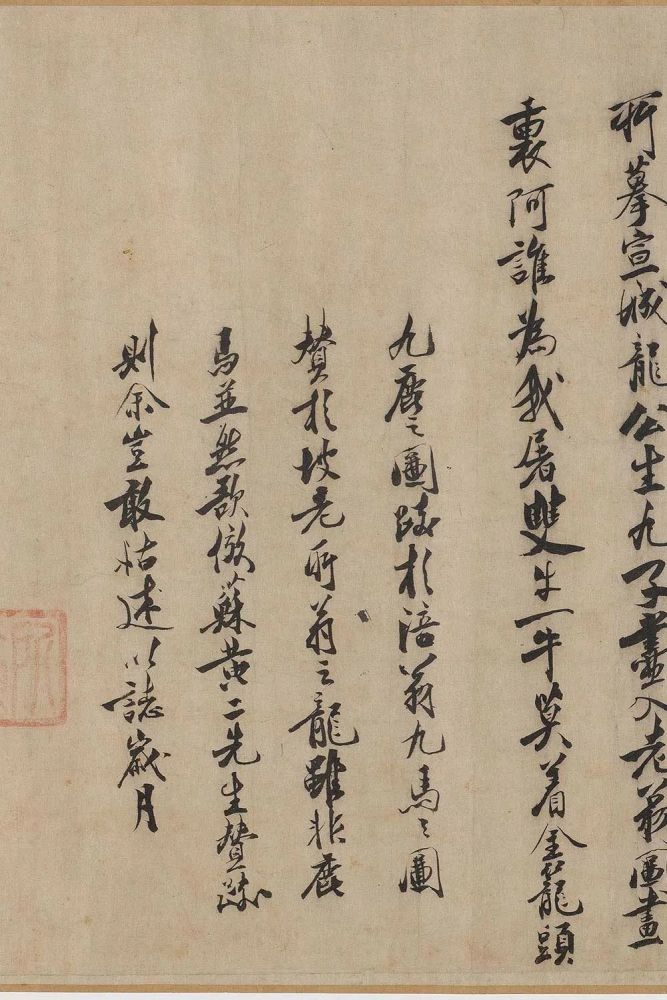 所摹宣城龍公生九子盡入老翁圖畫
裏阿誰為我屠雙牛一牛莫着金籠頭
九鹿之圖跋於涪翁九馬之圖
贊於坡老所翁之龍雖非鹿
馬並然欲倣蘇黃二先生贊跋
則余豈敢姑述以誌歲月